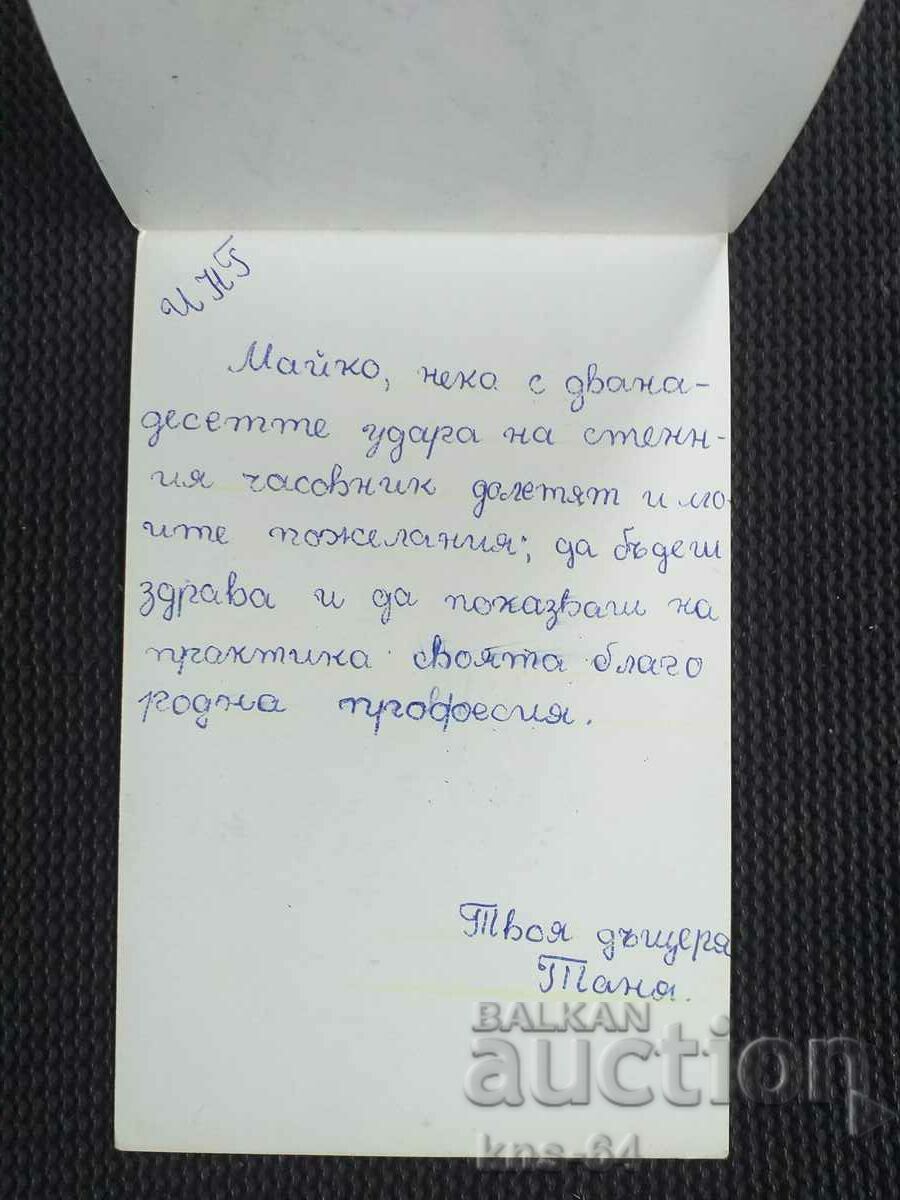 ЧНГ
Майко, нека с двана-
десетте удара на стенн-
ия часовник долетят и мо-
ите пожелания; да бъдеш
здрава и да показваш на
практика своята благо
родна професия.
Твоя дъщеря
Таня.
BALKAN
auction
kns-64